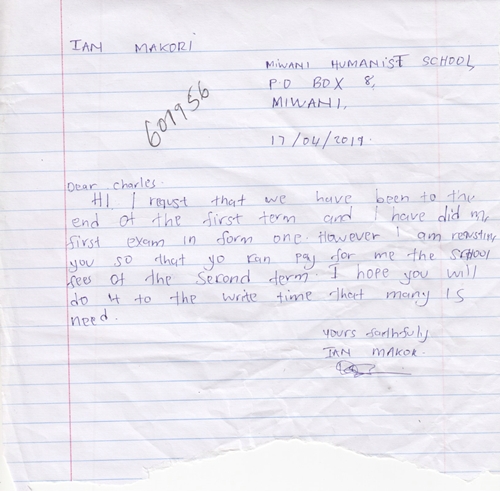 IAN MAKORI
MIWANI HUMANIST SCHOOL,
P.O BOX 8,
MIWANI,
601956
17/04/2019.
Dear Charles.
HI. I requst that we have been to the
end of the first term and I have did my
first exam in form one. However I am requsting
you so that yo can pay for me the school
fees of the second term. I hope you will
do it to the write time that many is
need.
Yours faithfuly
IAN MAKOR.